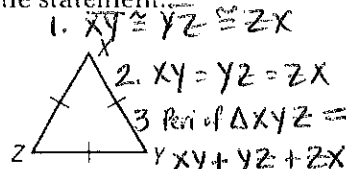 the statement.
1. XY ≅ YZ ≅ ZX
X
2. XY = YZ = ZX
3 Peri of ΔXYZ =
Z Y XY + YZ + ZX